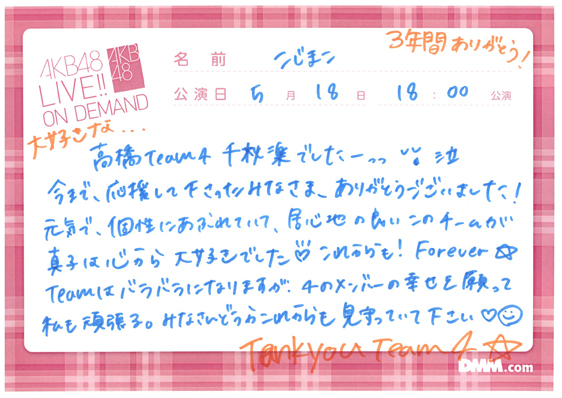 3年間ありがとう!
AKB48
LIVE!!
ON DEMAND
AKB
48
名前 こじまこ
公演日 5月18日 18:00公演
大好きな...
高橋Team4 千秋楽でしたーっっ 泣
今まで、応援して下さったみなさま、ありがとうございました!
元気で、個性にあふれていて、居心地の良いこのチームが
真子は心から大好きでした♡これからも!Forever☆
Teamはバラバラになりますが、4のメンバーの幸せを願って
私も頑張る。みなさんどうかこれからも見守っていて下さい♡
Tankyou Team 4 ☆
DMM.com